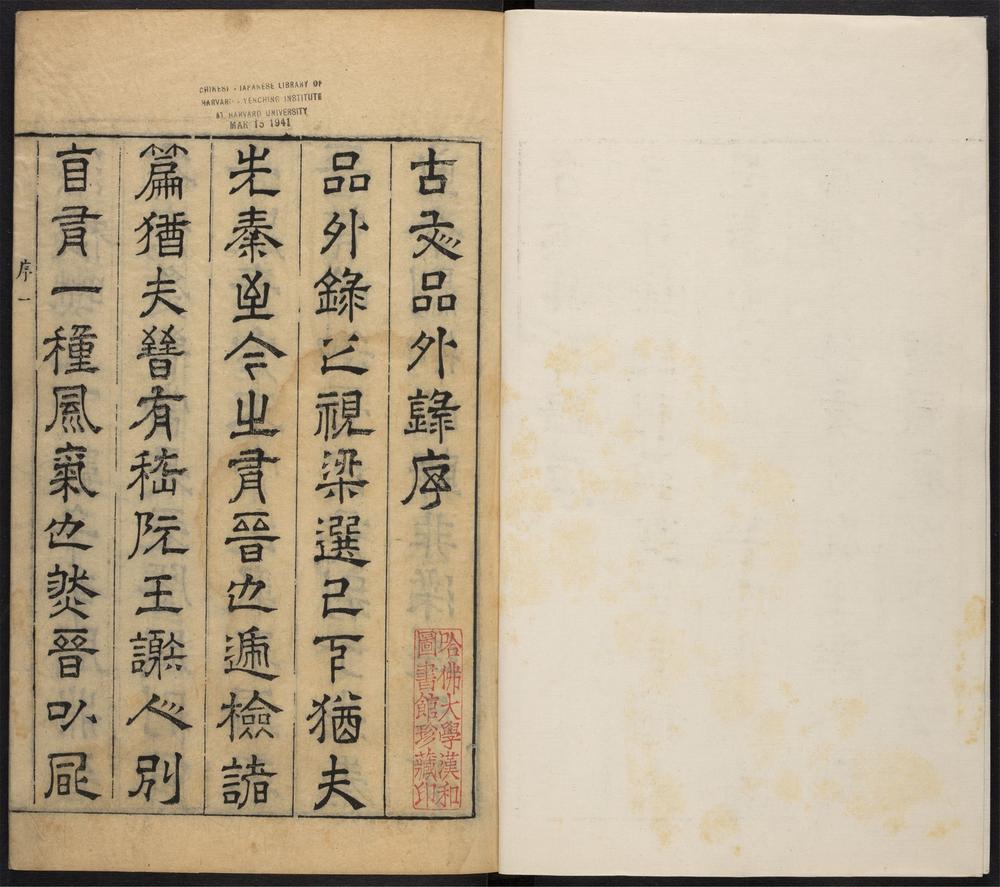 CHINESE - JAPANESE LIBRARY OF
HARVARD - YENCHING INSTITUTE
AT HARVARD UNIVERSITY
MAR 15 1941
古文品外錄序
哈佛大學漢和
圖書館珍藏印
品外錄之視梁選已下猶夫
先秦至今之有晉也遍檢諸
篇猶夫晉有嵇阮王謝人別
自有一種風氣也然晉以
序一